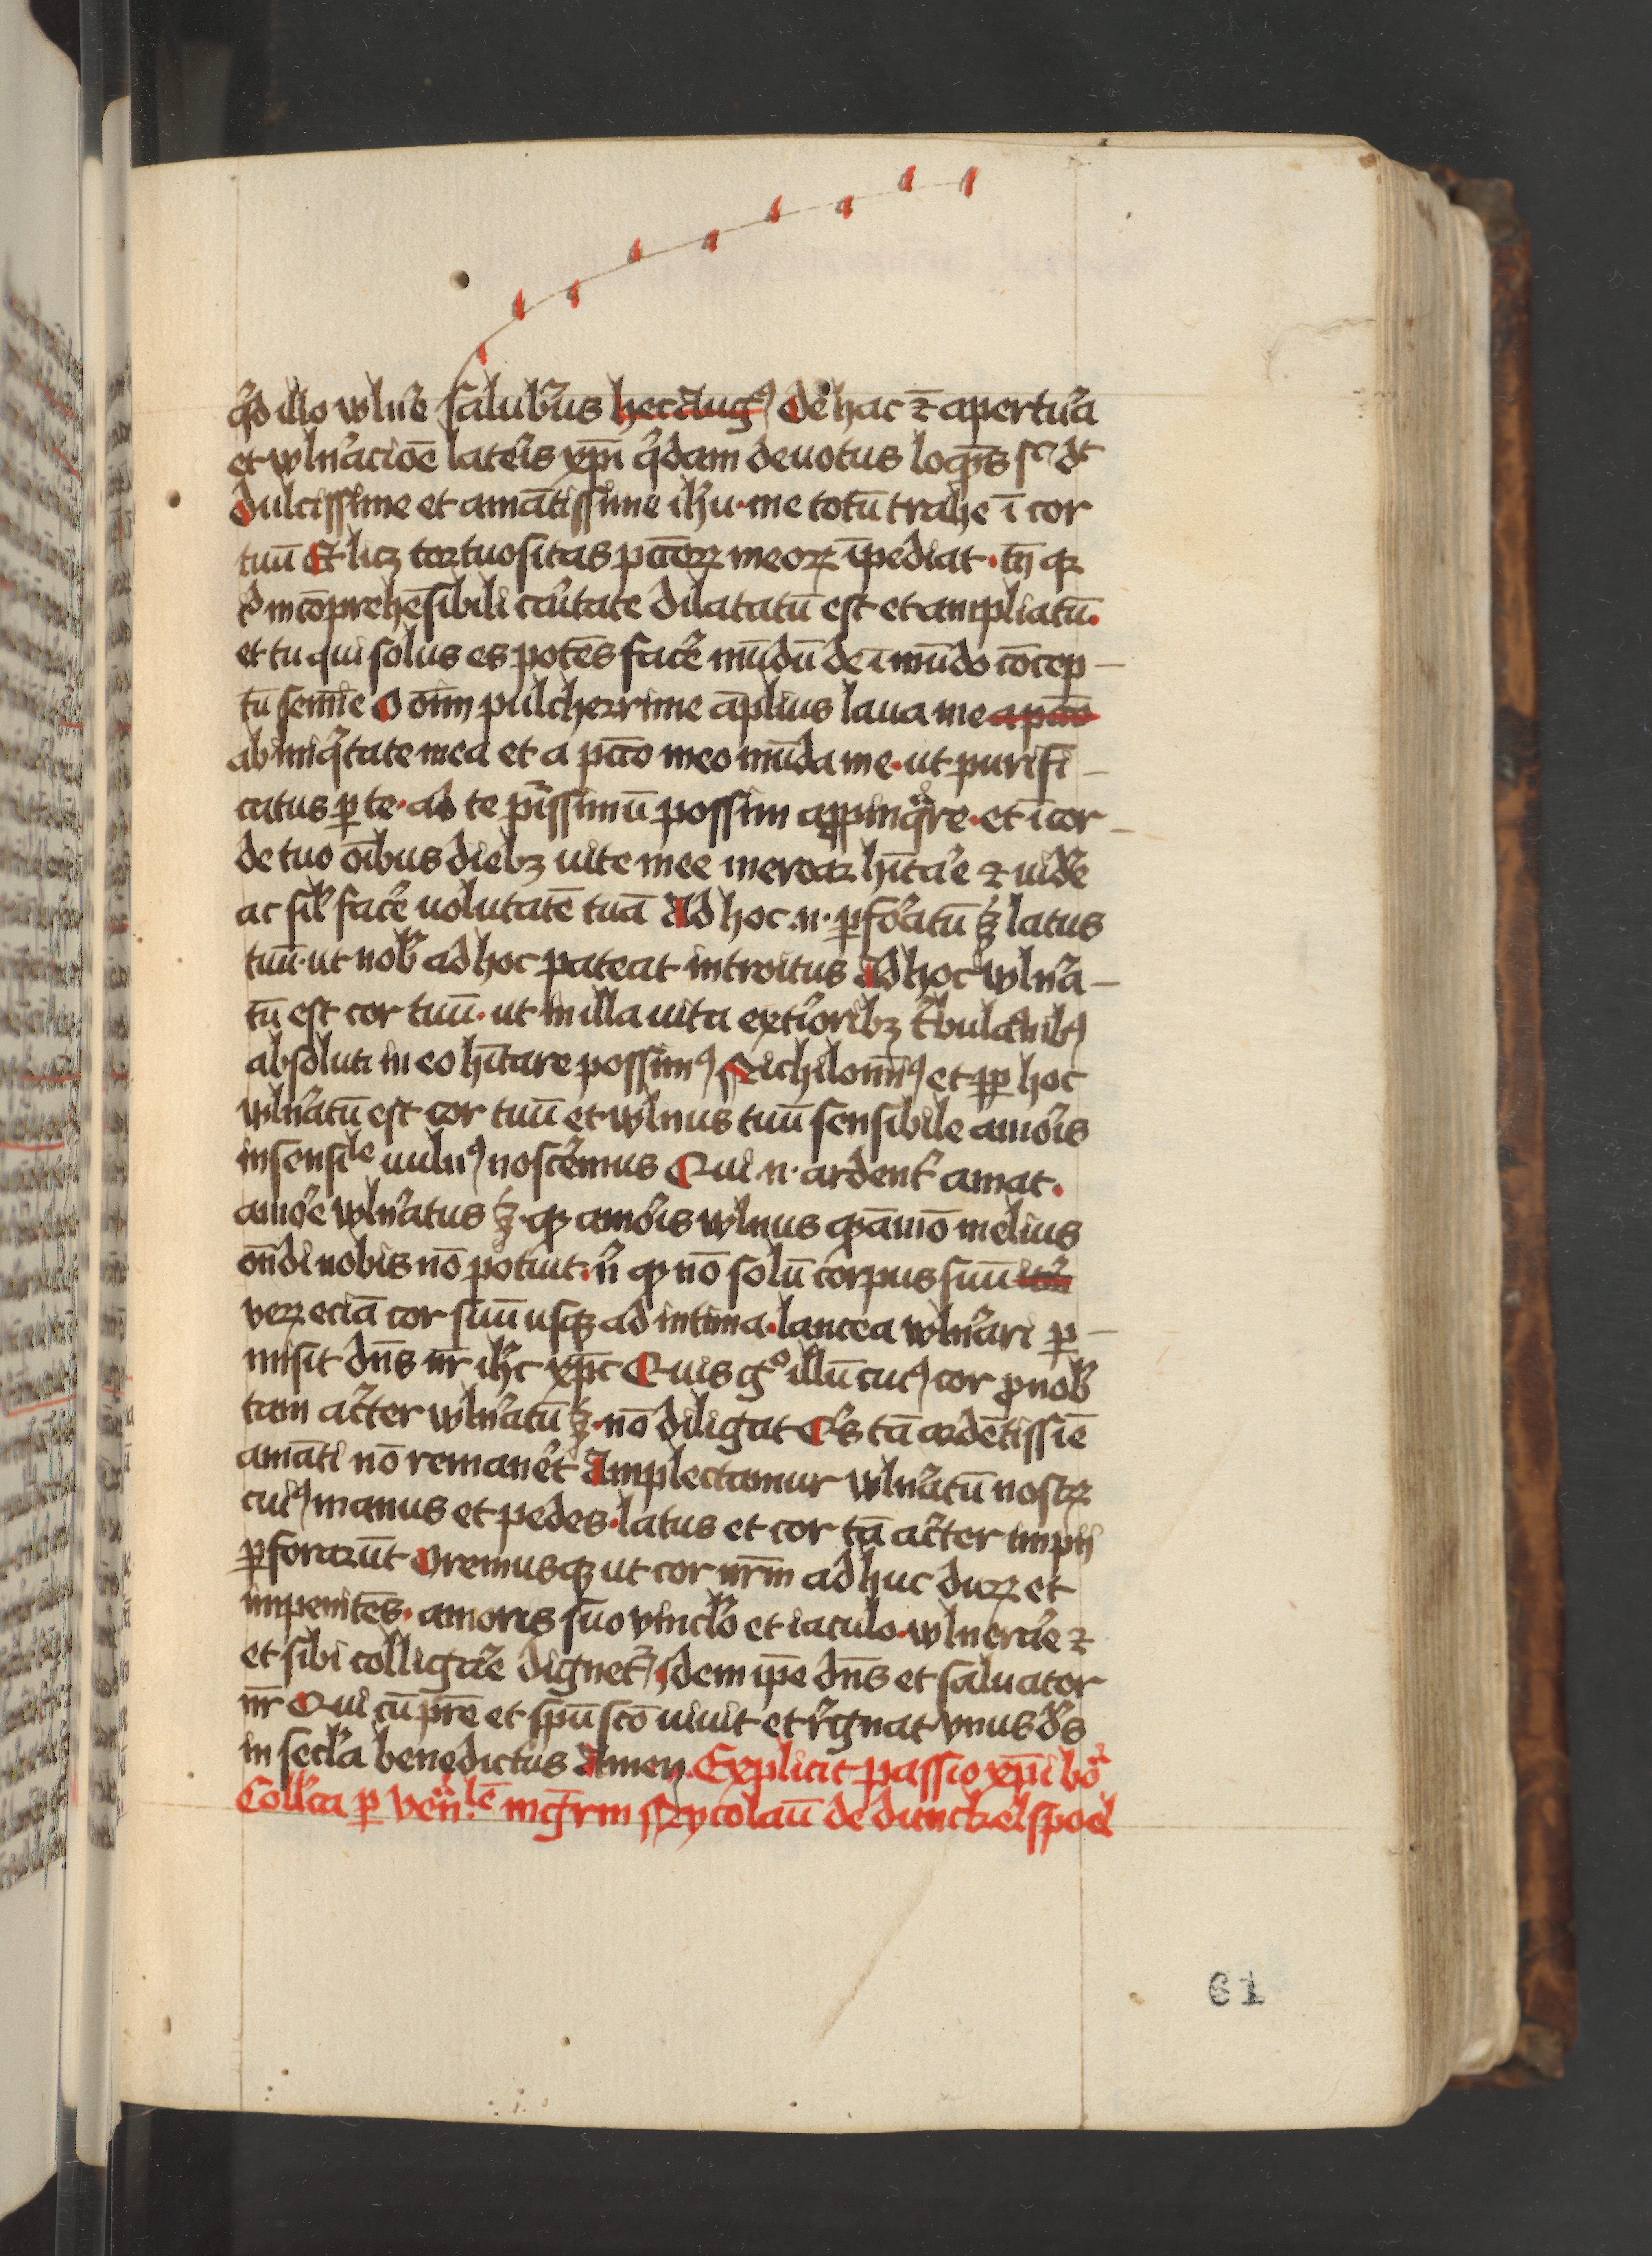 qͥd illo wlne᷑ salubͥus hec Augꝰ De hac et̄ apertu᷑a
et wlne᷑acioē late᷑is xp̄i qͥdam deuotus loquēs sic dt
dulcissime et amātissime ihu · me totū trahe ī cor
tuū Et licꝫ tortuositas pctōꝝ meoꝝ īpediat · tn̄ qꝛ
incōprehēsibili caͥtate dilatatū est et ampliatū ·
et tu qui solus es potēs face᷑ mūdū de īmūdo cōcep-
tū semīe O oīm pulcherrime āplius laua me a pctō
ab iniqͥtate mea et a pctō meo mūda me · ut purifi-
catus ꝑ te · ad te purissimū possim appinqͣre · et ī cor-
de tuo oībus diebꝫ uite mee merear hītare et uide᷑
ac sil face᷑ uolūtatē tuā Ad hoc .n. ꝑfo᷑atū ꝫ latus
tuū · ut nob᷑ ad hoc pateat introitus Ad hoc wlne᷑a-
tū est cor tuū · ut in illa uita exte᷑ioribꝫ tͥbulacōnibꝰ
absoluti in eo hītare possimꝰ Nichilominꝰ et ꝓp hoc
wlne᷑atū est cor tuū et wlnus tuū sensibile amo᷑is
insensile uulnꝰ nosce᷑mus Qui .n. ardent᷑ amat ·
amo᷑e wlne᷑atus ꝫ · qꝫ amo᷑is wlnus quōmō melius
on̄di nobis nō potuit · n᷑ qꝫ nō solū corpus suū
veꝝ eciā cor suū usqꝫ ad intima · lancea wlne᷑ari ꝑ-
misit dn̄s nr̄ ihc xp̄c Quis gͦ illū cuiꝰ cor ꝓ nob᷑
tam acͥter wlne᷑atū ꝫ · nō diligat Qͥs tā ardētissīe
amāti nō remane᷑t Amplectamur wlne᷑atū nostꝝ
cuiꝰ manus et pedes · latus et cor tā acͥter impii
ꝑforarūt Oremusqꝫ ut cor nr̄m adhuc duꝝ et
impenitēs · amoris suo vinclo et iaculo · wlnerae᷑ et
et sibi colligae᷑ dignet᷑ Idem ip̄e dn̄s et saluator
nr̄ Qui cū pr̄e et spū scō uiuit et re᷑gnat vnus de᷑s
in secl᷑a benedictus Amen. Explicit passio xp̄i boͣ
Coll᷑cta ꝑ ven᷑lē mgr̄m Nycolaū de dunckelspoel
61